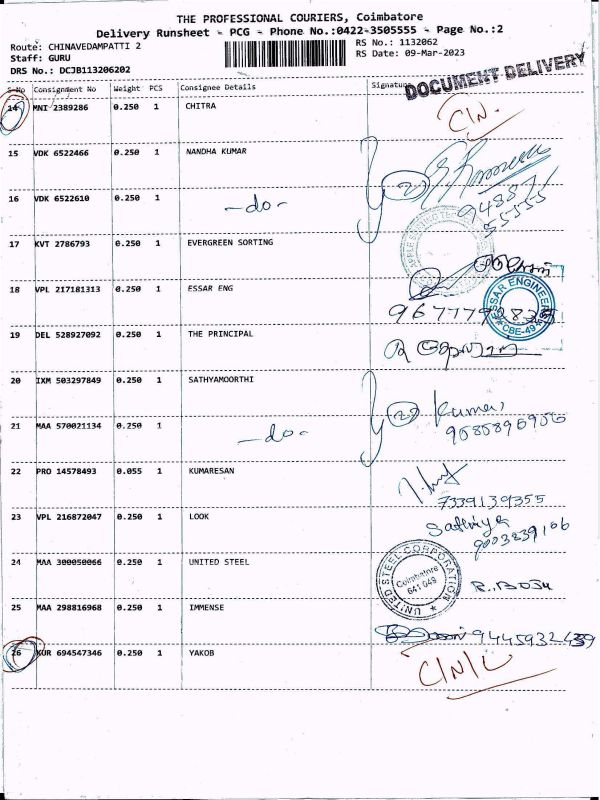 THE PROFESSIONAL COURIERS, Coimbatore
Delivery Runsheet - PCG - Phone No.:0422-3505555 - Page No.:2
Route: CHINAVEDAMPATTI 2
RS No.: 1132062
Staff: GURU
RS Date: 09-Mar-2023
DRS No.: DCJB113206202
DOCUMENT DELIVERY
S.No Consignment No Weight PCS Consignee Details Signature
14 MNI 2389286 0.250 1 CHITRA
C/N.
15 VDK 6522466 0.250 1 NANDHA KUMAR
2
16 VDK 6522610 0.250 1 -do-
94887
55555
17 KVT 2786793 0.250 1 EVERGREEN SORTING
18 VPL 217181313 0.250 1 ESSAR ENG
ESSAR ENGINEER
CBE-49
19 DEL 528927092 0.250 1 THE PRINCIPAL
20 IXM 503297849 0.250 1 SATHYAMOORTHI
2 Kumar,
21 MAA 570021134 0.250 1 -do-
9585896956
22 PRO 14578493 0.055 1 KUMARESAN
7339139355
23 VPL 216872047 0.250 1 LOOK
Sathiya
9003839106
24 MAA 300050066 0.250 1 UNITED STEEL
UNITED STEEL CORPORATION
Coimbatore
641 049
25 MAA 298816968 0.250 1 IMMENSE
9445932439
26 KUR 694547346 0.250 1 YAKOB
C/N/L